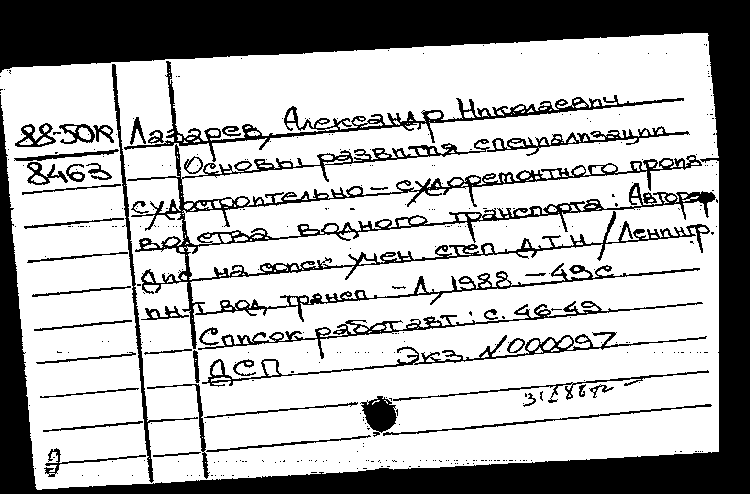 88-50R Лазарев, Александр Николаевич.
8463 Основы развития специализации
судостроительно-судоремонтного произ-
водства водного транспорта : Автореф.
Дис на соиск учен. степ. Д.Т.Н / Ленингр.
ин-т вод. трансп. – Л., 1988. – 49 с.
Список работ авт. : с. 46-49.
ДСП. Экз. N 000097